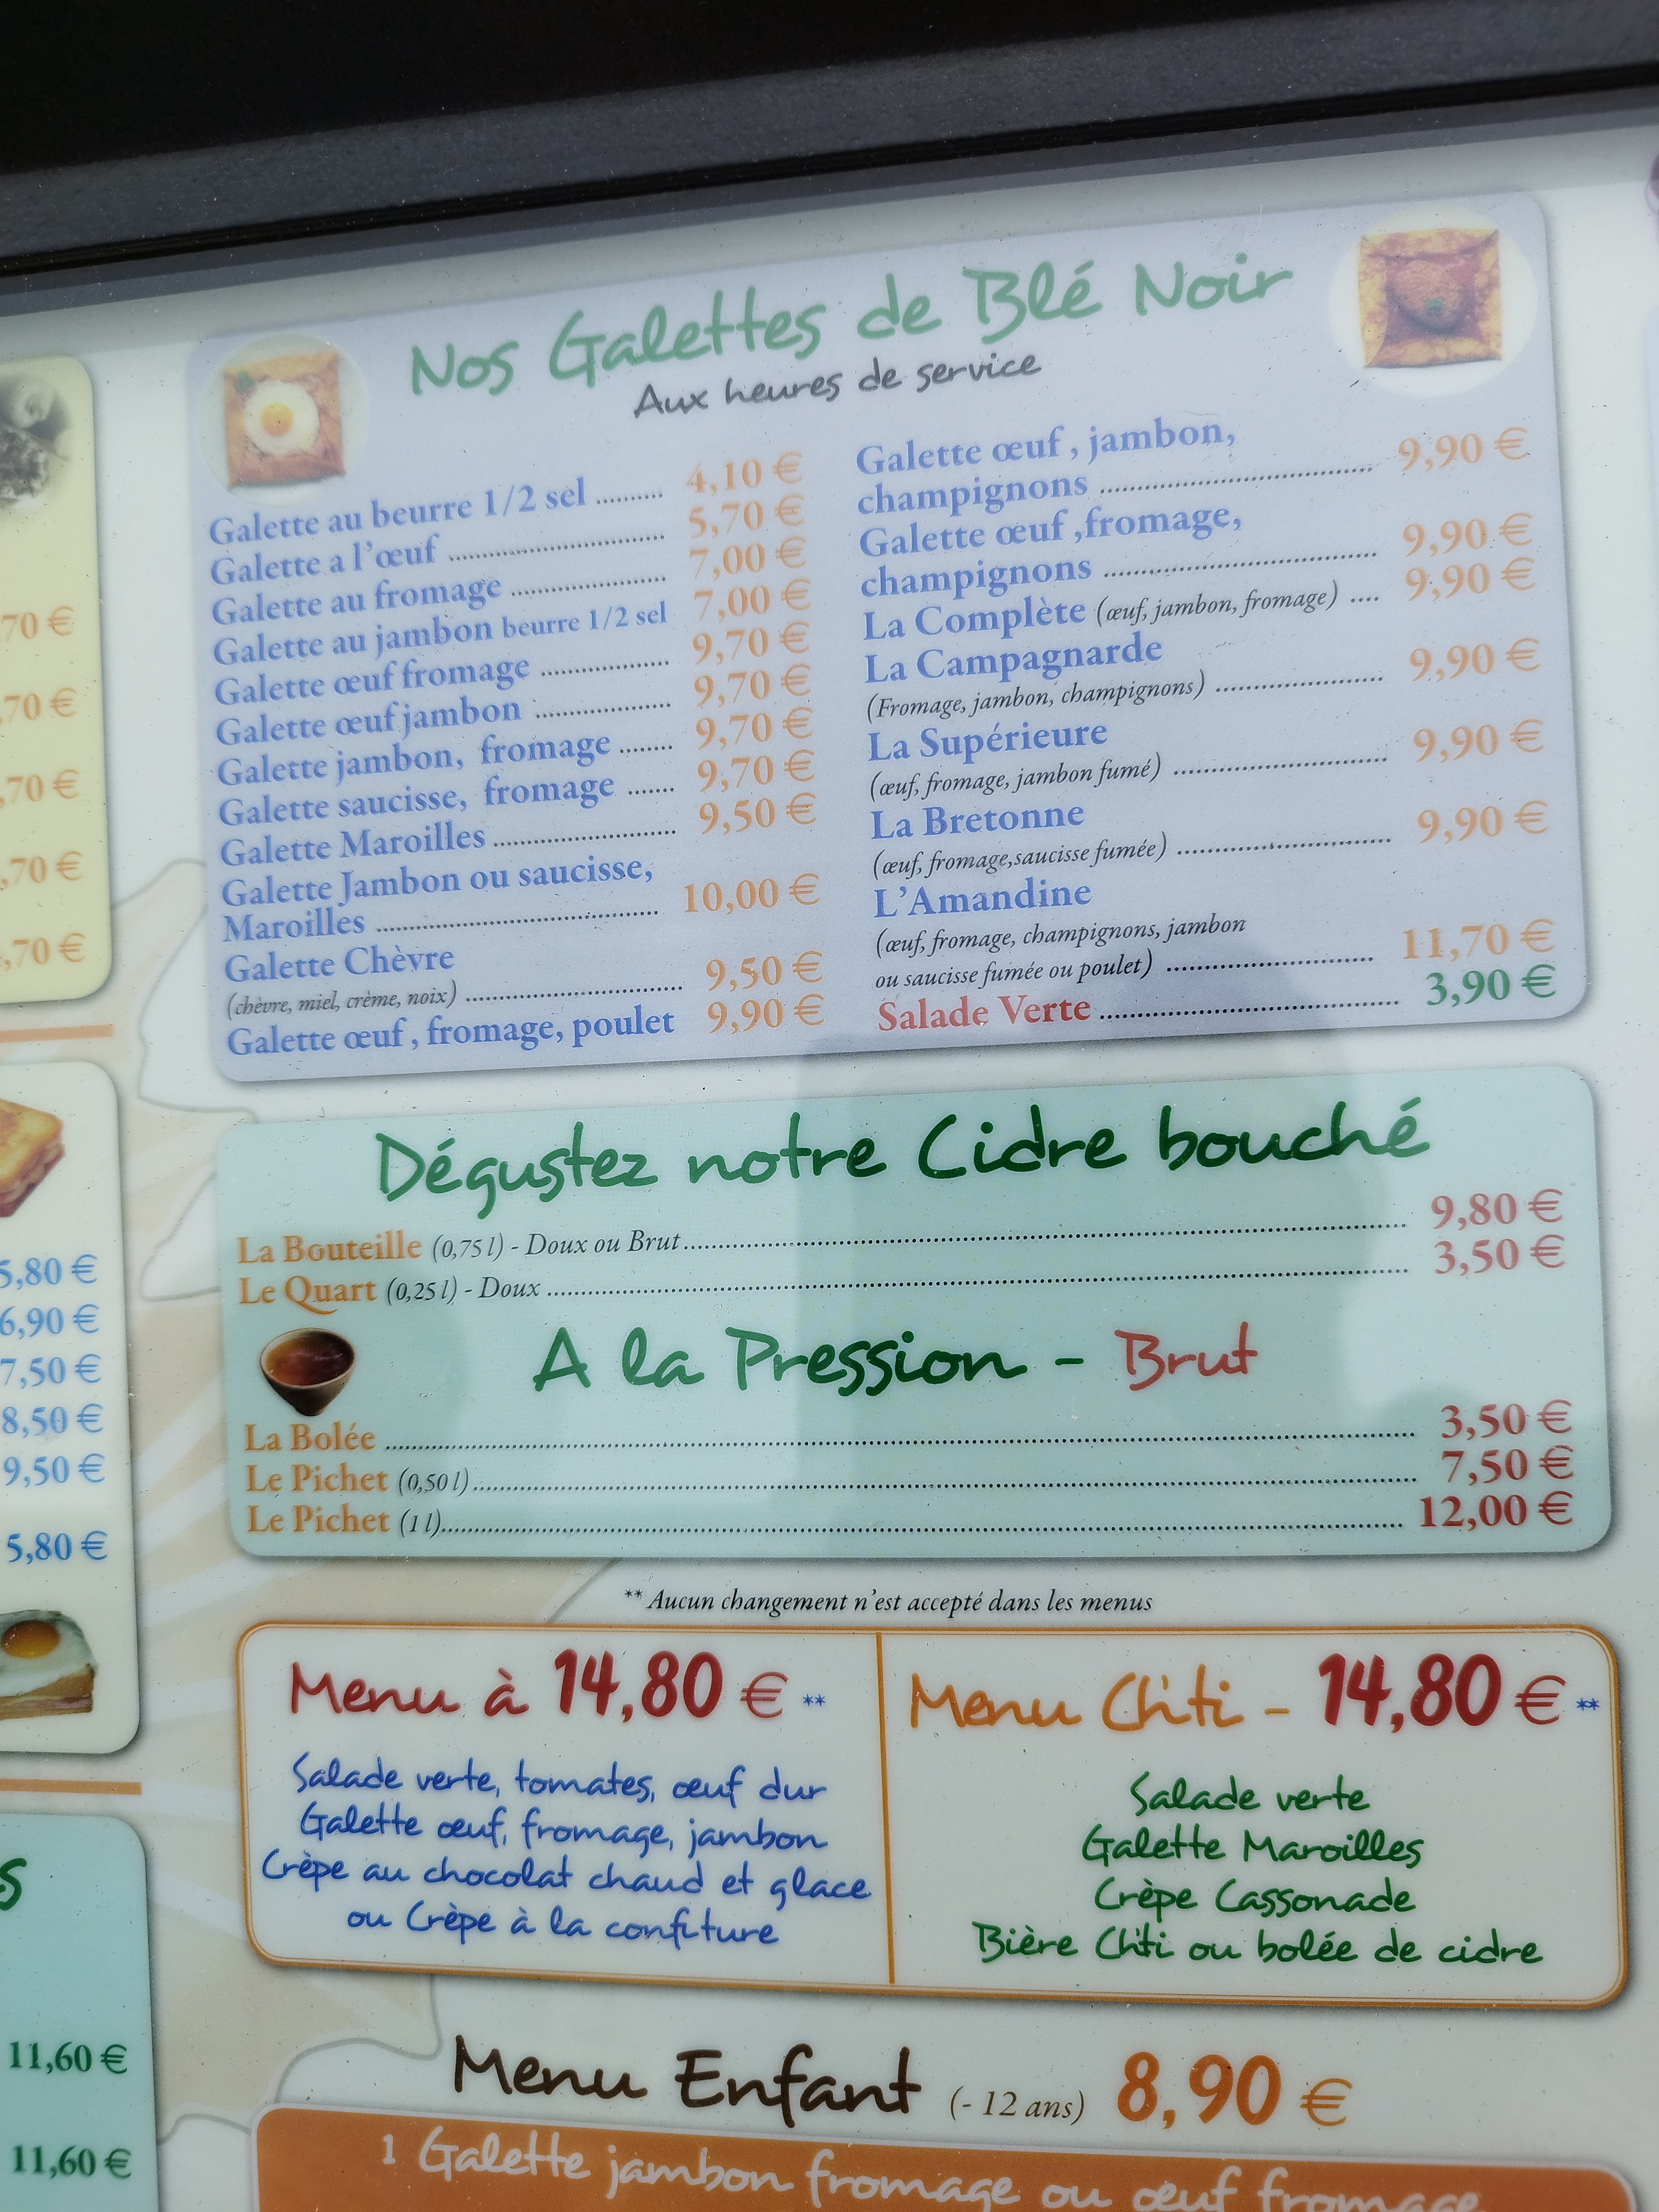 Nos Galettes de Blé Noir
Aux heures de service
Galette au beurre 1/2 sel .......... 4,10 €
Galette a l'œuf .......... 5,70 €
Galette au fromage .......... 7,00 €
Galette au jambon beurre 1/2 sel 7,00 €
Galette œuf fromage .......... 9,70 €
Galette œuf jambon .......... 9,70 €
Galette jambon, fromage ........ 9,70 €
Galette saucisse, fromage ....... 9,70 €
Galette Maroilles .......... 9,50 €
Galette Jambon ou saucisse,
Maroilles .......... 10,00 €
Galette Chèvre
(chèvre, miel, crème, noix) .......... 9,50 €
Galette œuf , fromage, poulet 9,90 €
Galette œuf , jambon,
champignons .......... 9,90 €
Galette œuf ,fromage,
champignons .......... 9,90 €
La Complète (œuf, jambon, fromage) .... 9,90 €
La Campagnarde
(Fromage, jambon, champignons) .......... 9,90 €
La Supérieure
(œuf, fromage, jambon fumé) .......... 9,90 €
La Bretonne
(œuf, fromage,saucisse fumée) .......... 9,90 €
L'Amandine
(œuf, fromage, champignons, jambon
ou saucisse fumée ou poulet) .......... 11,70 €
Salade Verte .......... 3,90 €
Dégustez notre Cidre bouché
La Bouteille (0,75 l) - Doux ou Brut .......... 9,80 €
Le Quart (0,25 l) - Doux .......... 3,50 €
A la Pression - Brut
La Bolée .......... 3,50 €
Le Pichet (0,50 l) .......... 7,50 €
Le Pichet (1 l) .......... 12,00 €
** Aucun changement n'est accepté dans les menus
Menu à 14,80 € **
Salade verte, tomates, œuf dur
Galette œuf, fromage, jambon
Crèpe au chocolat chaud et glace
ou Crèpe à la confiture
Menu Ch'ti - 14,80 € **
Salade verte
Galette Maroilles
Crèpe Cassonade
Bière Ch'ti ou bolée de cidre
Menu Enfant (- 12 ans) 8,90 €
1 Galette jambon fromage ou œuf fromage
,70 €
,70 €
,70 €
,70 €
,70 €
5,80 €
6,90 €
7,50 €
8,50 €
9,50 €
5,80 €
s
11,60 €
11,60 €